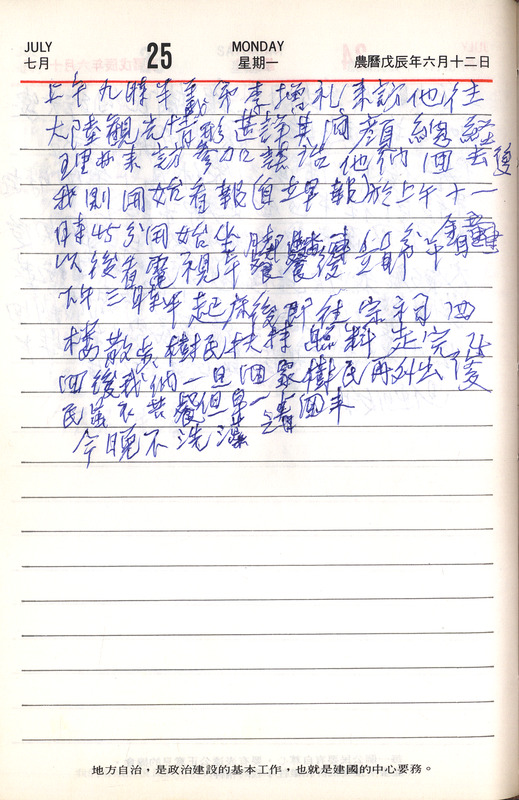 JULY 七月 25 MONDAY 星期一 農曆戊辰年六月十二日
上午九時半戴弟李增礼來訪他往
大陸觀光情形甚詳其間顏總經
理也來訪參加談話他們回去後
我則開始看報(自立早報)於上午十一
時45分開始坐
以後看電視午餐後 午睡
下午三時半起床後即往宗祠四
樓散步樹民扶持照料走完
四後我們一旦回家樹民再外出
民 衣共餐但早一 回來
今晚不洗澡
地方自治,是政治建設的基本工作,也就是建國的中心要務。